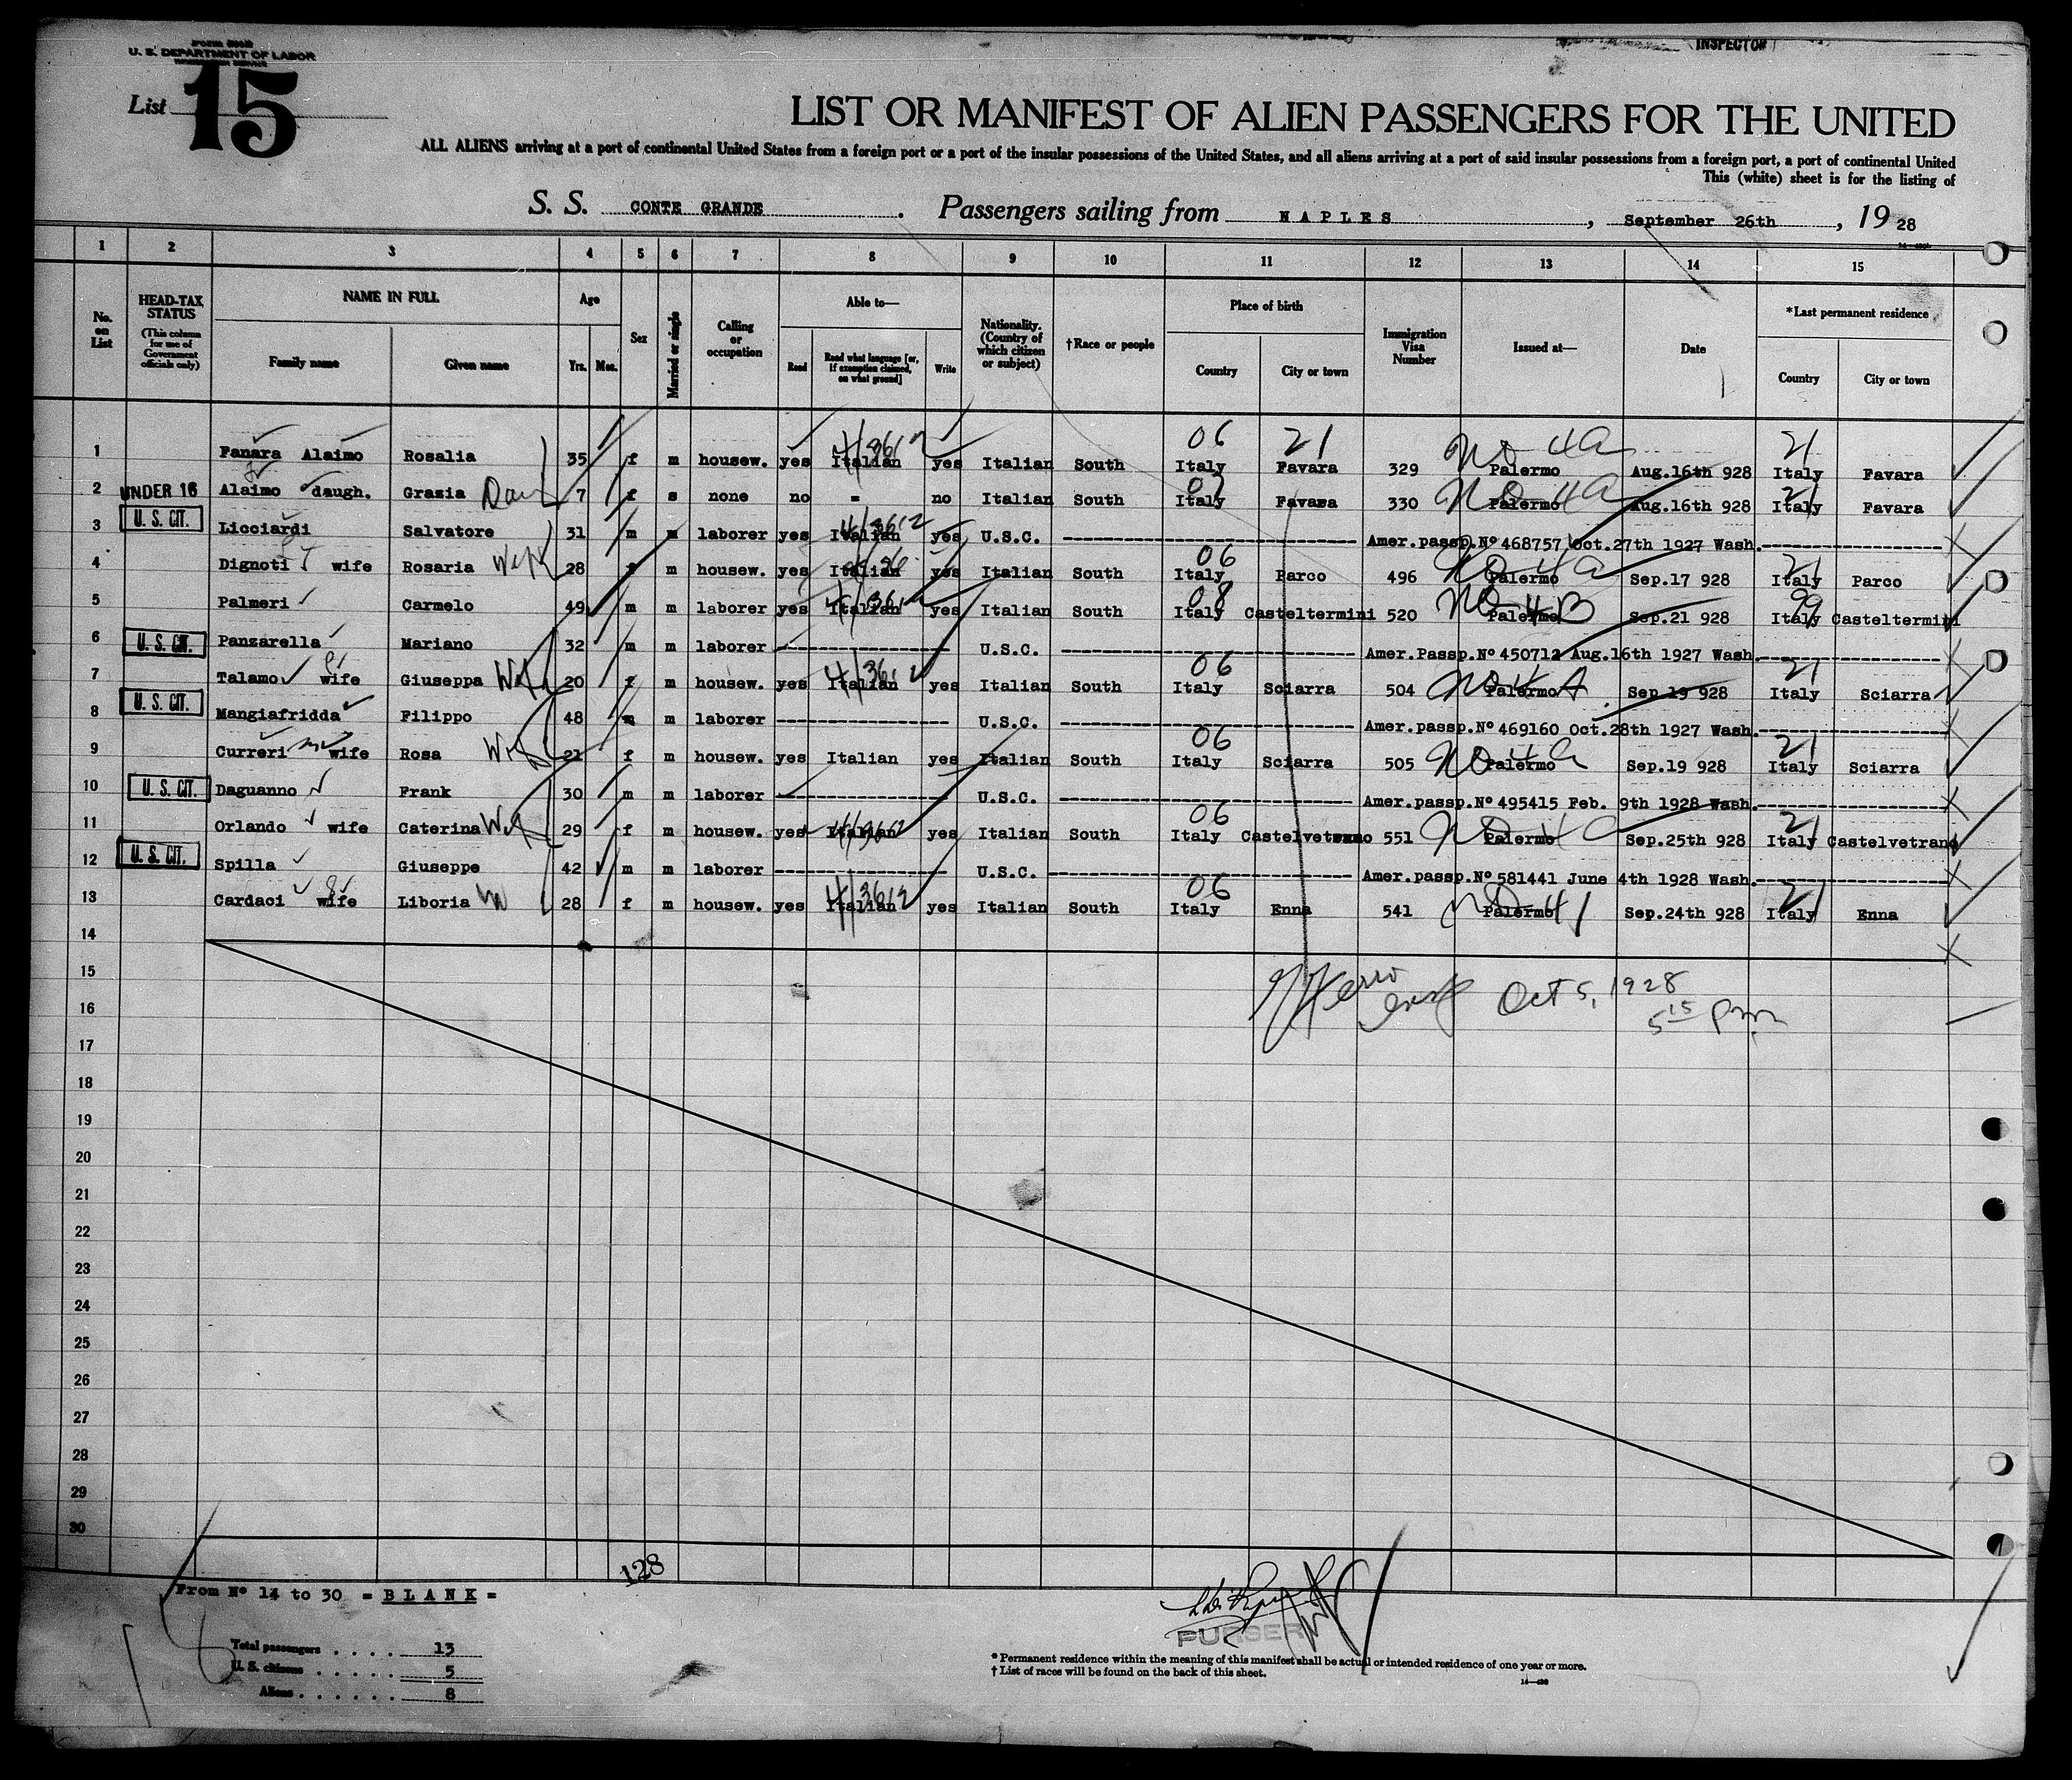 U. S. DEPARTMENT OF LABOR
INSPECTOR
List 15
LIST OR MANIFEST OF ALIEN PASSENGERS FOR THE UNITED
ALL ALIENS arriving at a port of continental United States from a foreign port or a port of the insular possessions of the United States, and all aliens arriving at a port of said insular possessions from a foreign port, a port of continental United
This (white) sheet is for the listing of
S. S. CONTE GRANDE. Passengers sailing from NAPLES, September 26th, 19 28
1 2 3 4 5 6 7 8 9 10 11 12 13 14 15
No. on List
HEAD-TAX STATUS (This column for use of Government officials only)
NAME IN FULL Family name Given name
Age Yrs. Mos.
Sex
Married or single
Calling or occupation
Able to— Read Read what language [or, if exemption claimed, on what ground] Write
Nationality. (Country of which citizen or subject)
†Race or people
Place of birth Country City or town
Immigration Visa Number
Issued at—
Date
*Last permanent residence Country City or town
1 Fanara Alaimo Rosalia 35 f m housew. yes Italian yes Italian South 06 Italy 21 Favara 329 No 4a Palermo Aug.16th 928 21 Italy Favara
2 UNDER 16 Alaimo daugh. Grazia Dau 7 f s none no = no Italian South 07 Italy Favara 330 No 4a Palermo Aug.16th 928 21 Italy Favara
3 U. S. CIT. Licciardi Salvatore 31 m m laborer yes Italian yes U.S.C. Amer.passp.Nº 468757 Oct.27th 1927 Wash.
4 Dignoti wife Rosaria Wife 28 f m housew. yes Italian yes Italian South 06 Italy Parco 496 No 4a Palermo Sep.17 928 21 Italy Parco
5 Palmeri Carmelo 49 m m laborer yes Italian yes Italian South 08 Italy Casteltermini 520 No 4B Palermo Sep.21 928 99 Italy Casteltermini
6 U. S. CIT. Panzarella Mariano 32 m m laborer U.S.C. Amer.Passp.Nº 450712 Aug.16th 1927 Wash.
7 Talamo wife Giuseppa 20 f m housew. yes Italian yes Italian South 06 Italy Sciarra 504 No 4A Palermo Sep.19 928 21 Italy Sciarra
8 U. S. CIT. Mangiafridda Filippo 48 m m laborer U.S.C. Amer.passp.Nº 469160 Oct.28th 1927 Wash.
9 Curreri wife Rosa 21 f m housew. yes Italian yes Italian South 06 Italy Sciarra 505 No 4a Palermo Sep.19 928 21 Italy Sciarra
10 U. S. CIT. Daguanno Frank 30 m m laborer U.S.C. Amer.passp.Nº 495415 Feb. 9th 1928 Wash.
11 Orlando wife Caterina 29 f m housew. yes Italian yes Italian South 06 Italy Castelvetrano 551 Palermo Sep.25th 928 21 Italy Castelvetrano
12 U. S. CIT. Spilla Giuseppe 42 m m laborer U.S.C. Amer.passp.Nº 581441 June 4th 1928 Wash.
13 Cardaci wife Liboria W 28 f m housew. yes Italian yes Italian South 06 Italy Enna 541 Palermo Sep.24th 928 21 Italy Enna
14
15
Oct 5, 1928
16
5 15 Pm
17
18
19
20
21
22
23
24
25
26
27
28
29
30
128
From Nº 14 to 30 = BLANK =
PURSER
Total passengers . . . . 13
U. S. citizens . . . . . 5
Aliens . . . . . . 8
* Permanent residence within the meaning of this manifest shall be actual or intended residence of one year or more.
† List of races will be found on the back of this sheet.